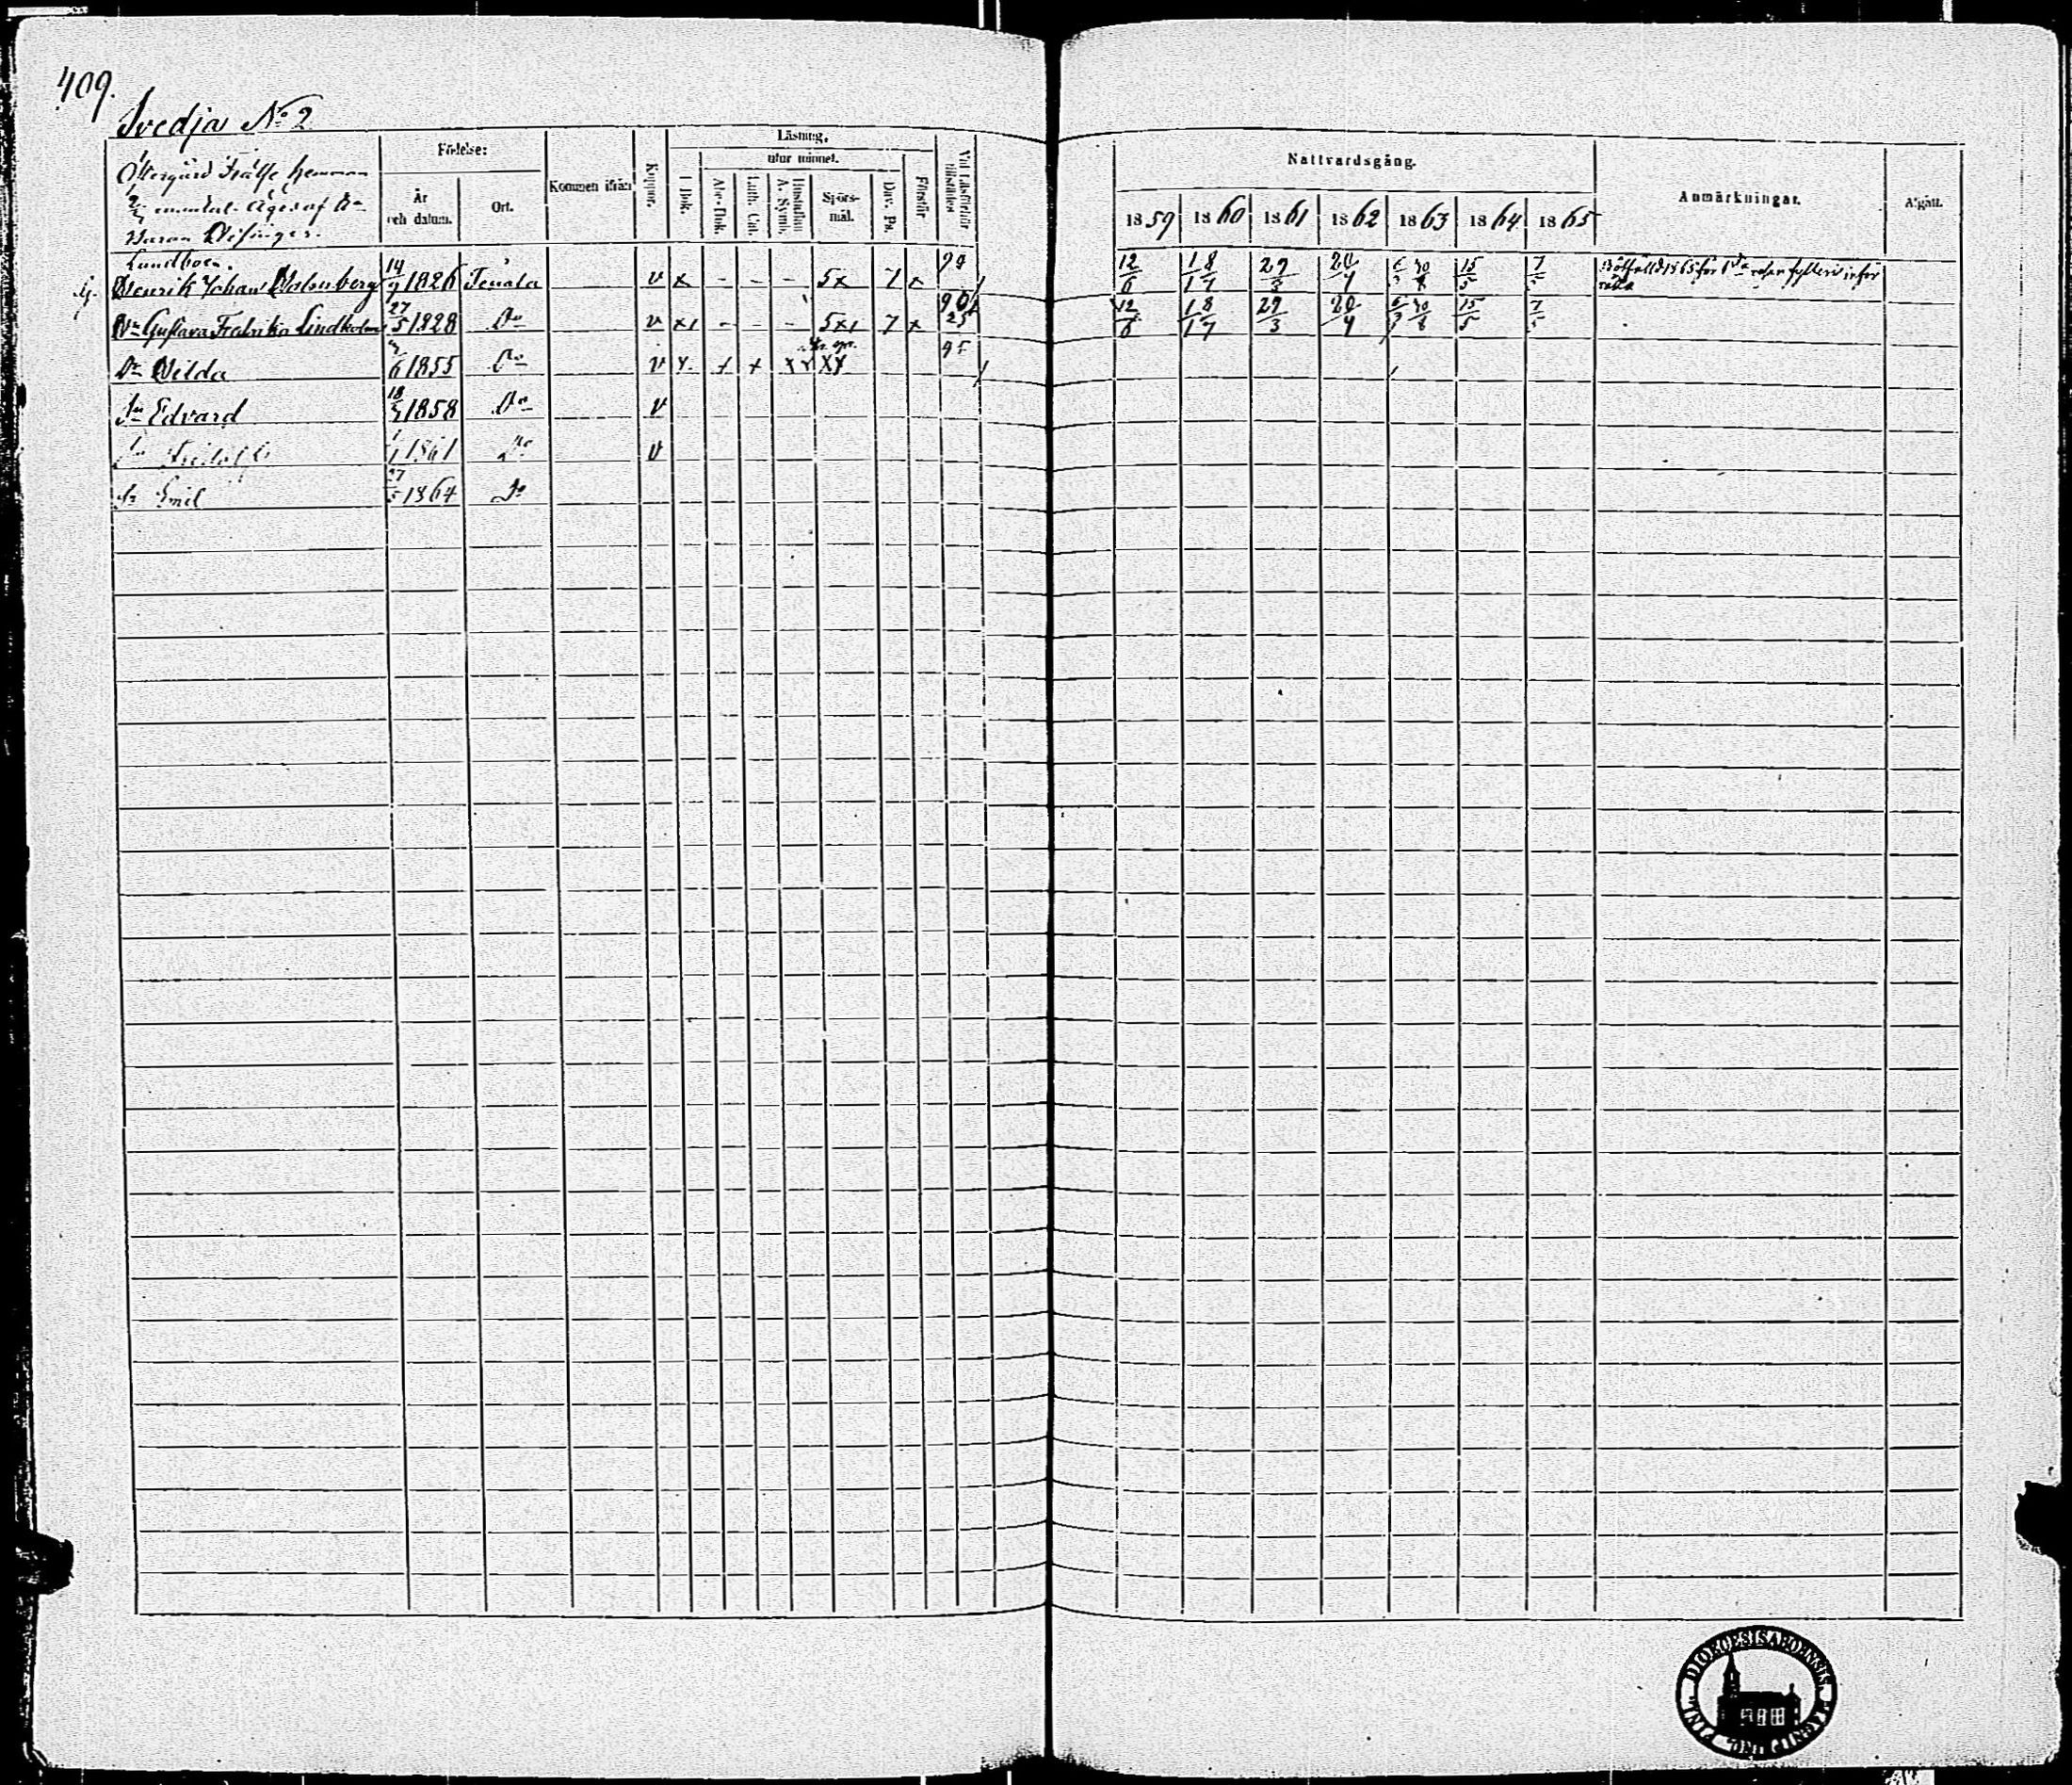 409.
Svedja No 2
Östergård Frälse hemman
mantal. Äges af
Baron
Födelse:
År och datum.
Ort.
Kommen ifrån
Koppor.
Läsning,
I Bok.
utur minnet.
Abc-Bok.
Luth. Cat.
Hustaflan A. Symb.
Spörs-mål.
Dav. Ps.
Förstår
Vid Läsförhör tillstädes
Nattvardsgång.
1859 1860 1861 1862 1863 1864 1865
Anmärkningar.
Afgått.
Landboen.
Henrik Johan Malmberg 14/9 1826 Tenala v x - - - 5x 7 x 12/6 18/17 29/3 20/4 6/3 30/8 15/5 7/5 Bötfälld 1865 för 1sta resan fylleri inför rätta
Hu Gustava Fredrika Lindholm 27/5 1828 Do v x1 - - - 5x1 7 x 12/6 18/17 29/3 20/4 6/3 30/8 15/5 7/5
Dr Hilda /6 1855 Do v x x xx xx
Sn Edvard 18/7 1858 Do v
Sn 1/1 1861 Do v
Sn Emil 27/5 1864 Do
DIOECESIS ABOENSIS